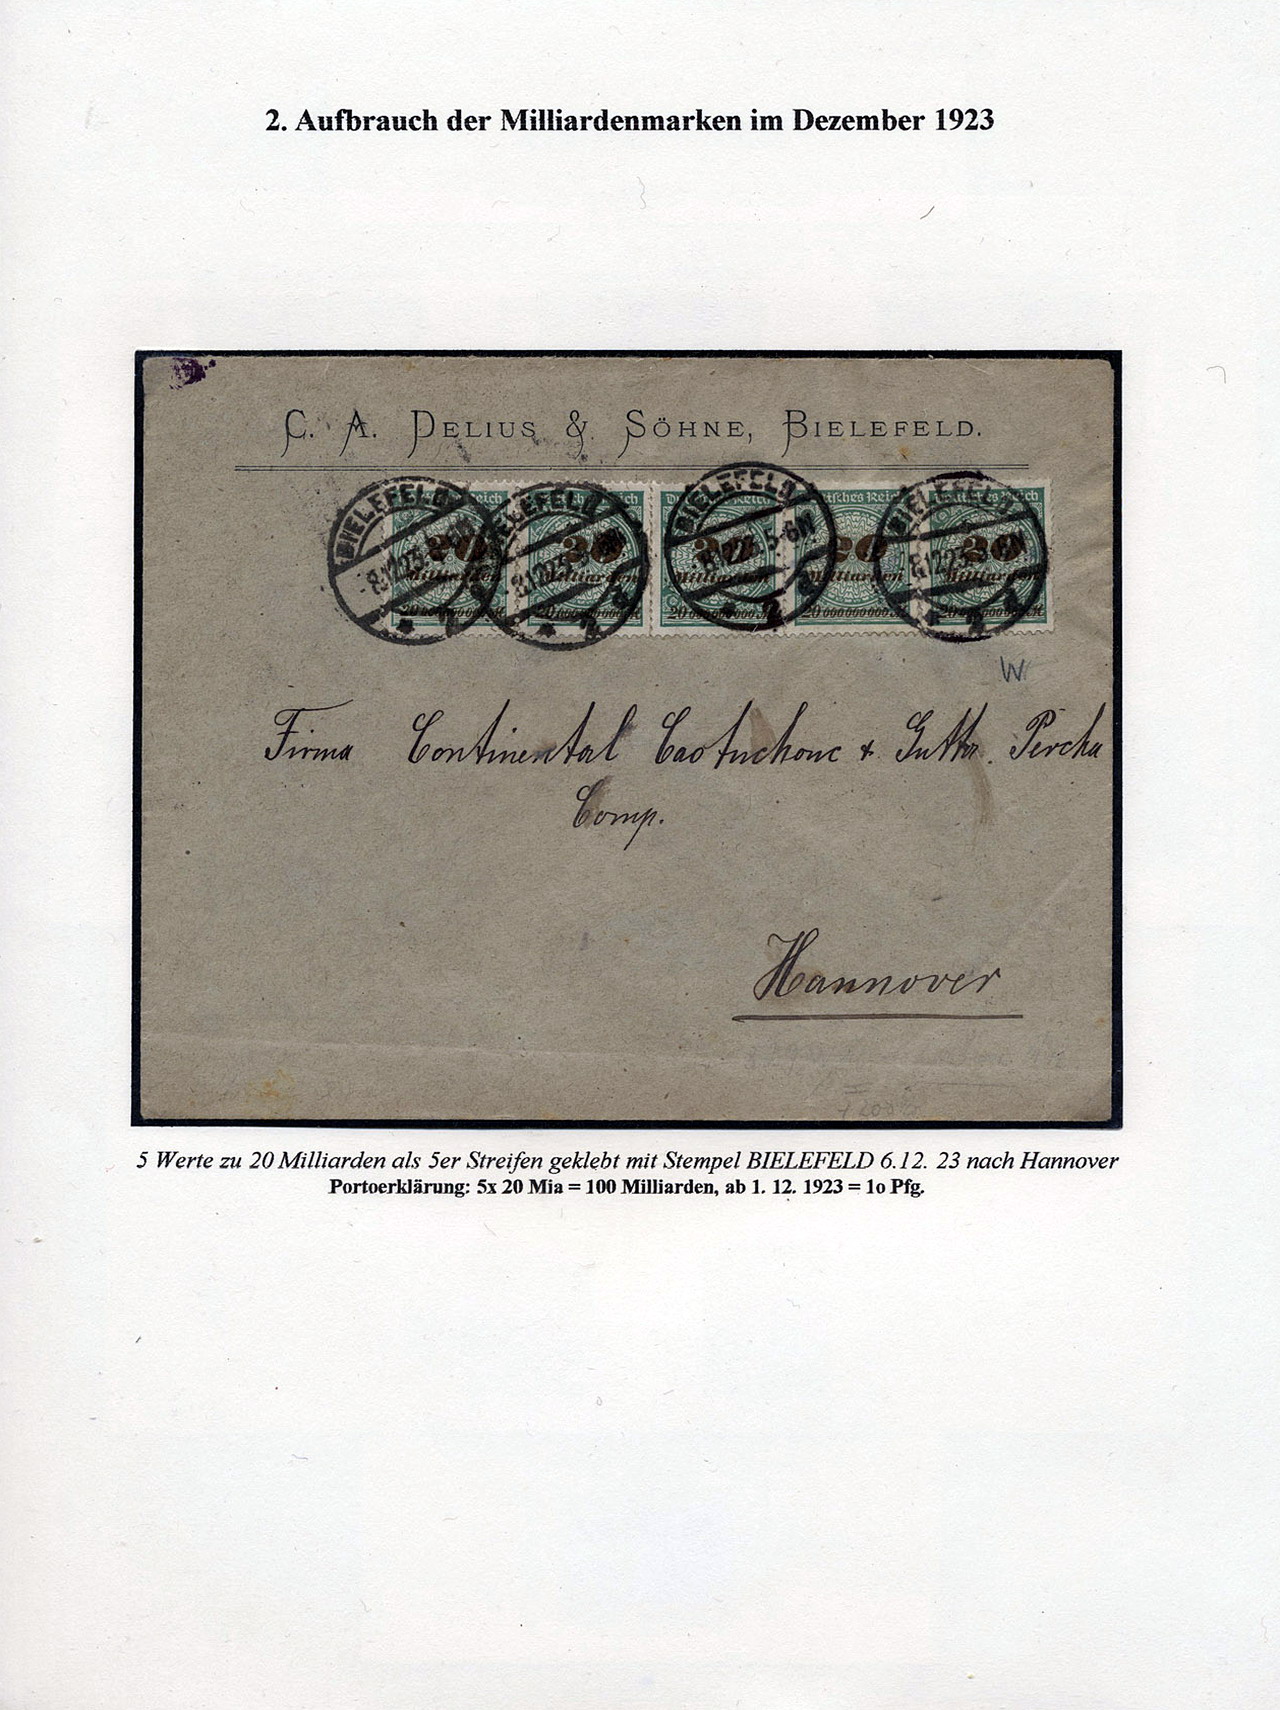 2. Aufbrauch der Milliardenmarken im Dezember 1923
C. A. DELIUS & SÖHNE, BIELEFELD.
BIELEFELD BIELEFELD BIELEFELD BIELEFELD
Deutsches Reich
20 20 20 20 20
Milliarden Milliarden Milliarden Milliarden Milliarden
W
Firma Continental Caotuchouc & Gutta. Percha
Comp.
Hannover
5 Werte zu 20 Milliarden als 5er Streifen geklebt mit Stempel BIELEFELD 6.12. 23 nach Hannover
Portoerklärung: 5x 20 Mia = 100 Milliarden, ab 1. 12. 1923 = 1o Pfg.